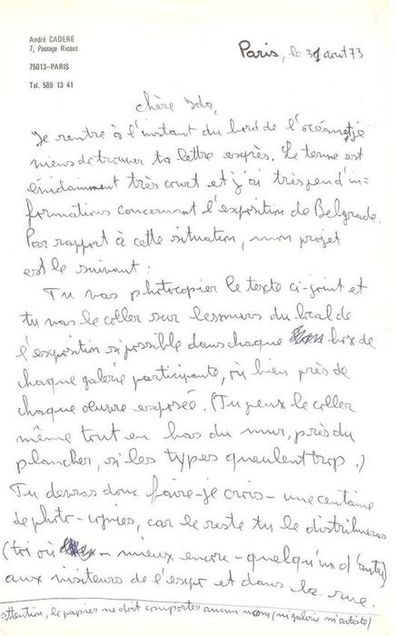 André CADERE
7, Passage Ricaut
75013-PARIS
Tél. 589 13 41
Paris, le 31 août 73
chère Ida,
Je rentre à l'instant du bord de l'océan et je
viens de trouver ta lettre exprès. Le terme est
évidemment très court et j'ai très peu d'in-
formations concernant l'exposition de Belgrade.
Par rapport à cette situation, mon projet
est le suivant:
Tu vas photocopier le texte ci-joint et
tu vas le coller sur les murs du local de
l'exposition si possible dans chaque box de
chaque galerie participante, où bien près de
chaque œuvre exposée. (Tu peux le coller
même tout en bas du mur, près du
plancher, si les types gueulent trop.)
Tu devras donc faire - je crois - une centaine
de photo-copies, car le reste tu le distribueras
(toi où - mieux encore - quelqu'un d'autre)
aux visiteurs de l'expo et dans la rue.
attention, le papier ne doit comporter aucun nom (ni galerie ni artiste)